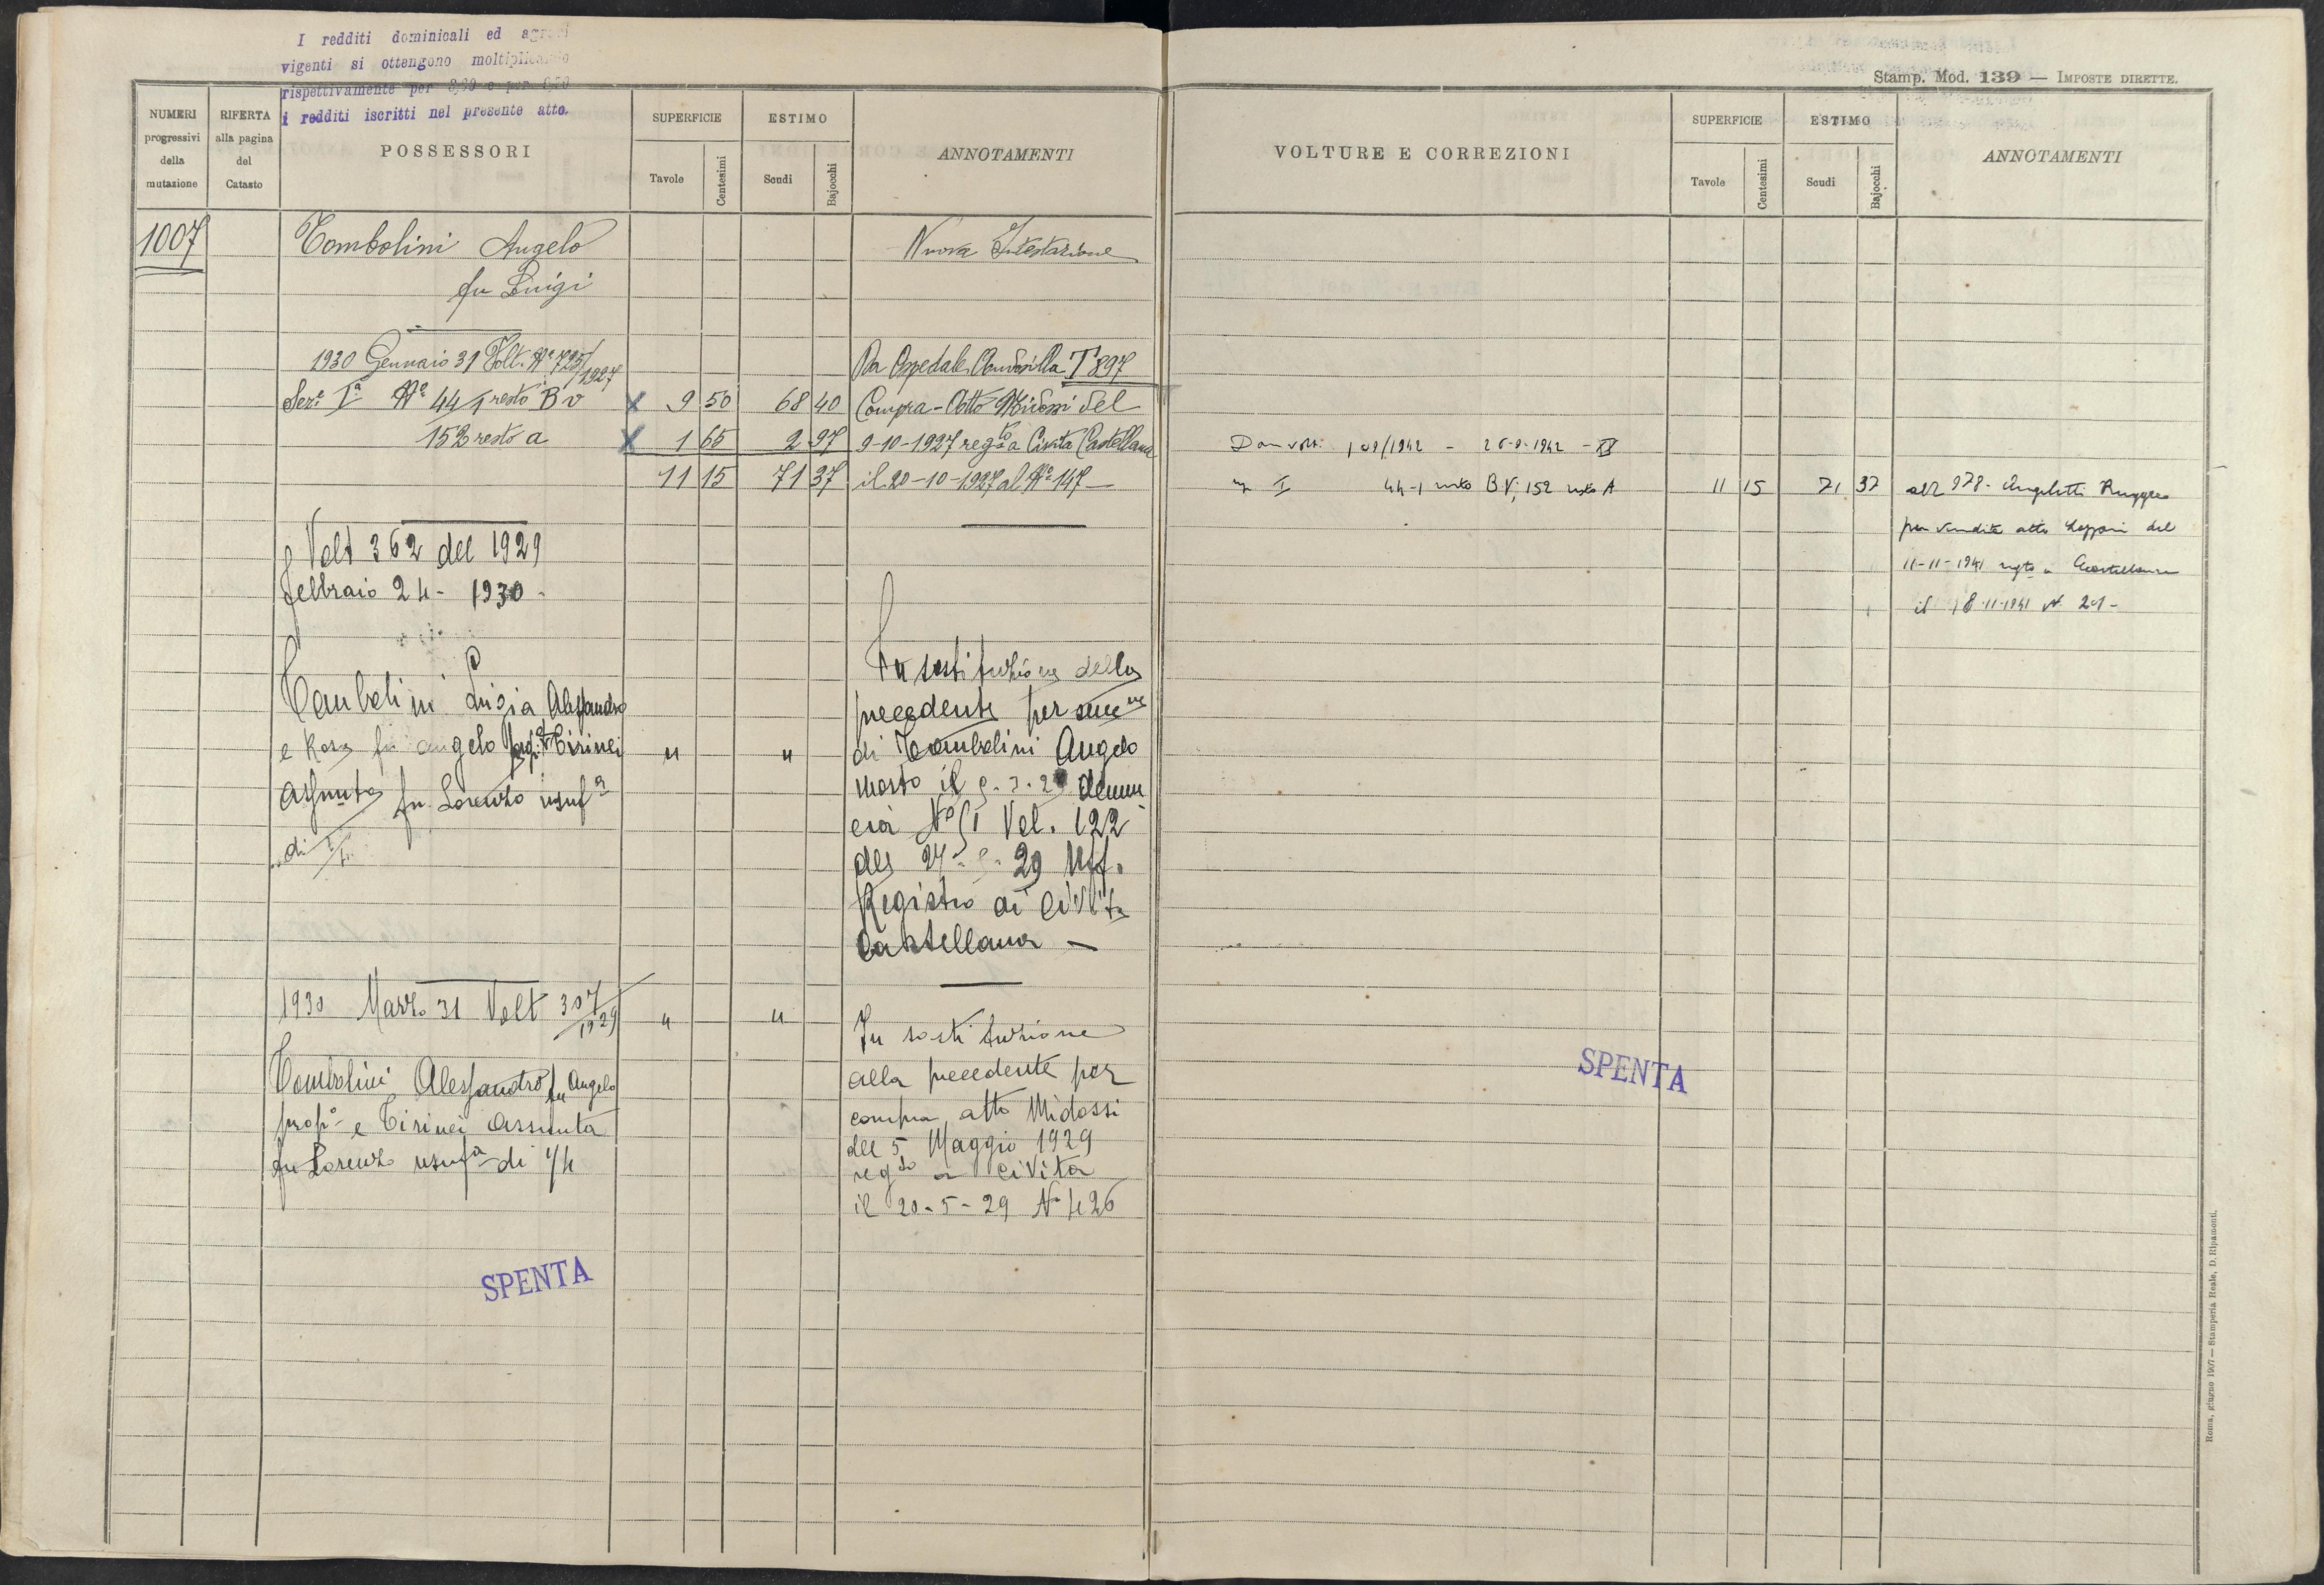 I redditi dominicali ed agrari
vigenti si ottengono moltiplicando
rispettivamente per
i redditi iscritti nel presente atto.
Stamp. Mod. 139 — IMPOSTE DIRETTE.
NUMERI progressivi della mutazione
RIFERTA alla pagina del Catasto
POSSESSORI
SUPERFICIE
Tavole
Centesimi
ESTIMO
Scudi
Bajocchi
ANNOTAMENTI
VOLTURE E CORREZIONI
SUPERFICIE
Tavole
Centesimi
ESTIMO
Scudi
Bajocchi
ANNOTAMENTI
1007 Tombolini Angelo Nuova Intestazione
fu Luigi
1930 Gennaio 31 Volt. Nº 725/1927 Da Ospedale T 897
Sezº Iª Nº 44/1 resto B v X 9 50 68 40 Compra - Atto Midossi del
152 resto a X 1 65 2 97 9-10-1927 regto a Civita Castellana
11 15 71 37 il 20-10-1927 al Nº 147
Volt 362 del 1929
febbraio 24 - 1930 -
In sostituzione della
Tombolini Luisa Alessandro precedente per succne
e Rosa fu Angelo propri e Tirinei " " di Tombolini Angelo
Assunta fu Lorenzo usufª morto il denun
di cia Vol. 122
del Uff.
Registro di Civita
Castellana —
1930 Marzo 31 Volt 307/1929 " " In sostituzione
Tombolini Alessandro fu Angelo alla precedente per
propº e Tirinei Assunta compra atto Midossi
fu Lorenzo usufª di 1/4 del 5 Maggio 1929
regto a Civita
il 20-5-29 Nº 426
SPENTA
1942 - XX
I 44-1 resto B.V, 152 resto A 11 15 71 37 all 978 - Angeletti Ruggero
per vendita atto del
11-11-1941 regto a Castellana
il 18-11-1941 Nº
SPENTA
Roma, giugno 1907 — Stamperia Reale, D. Ripamonti.